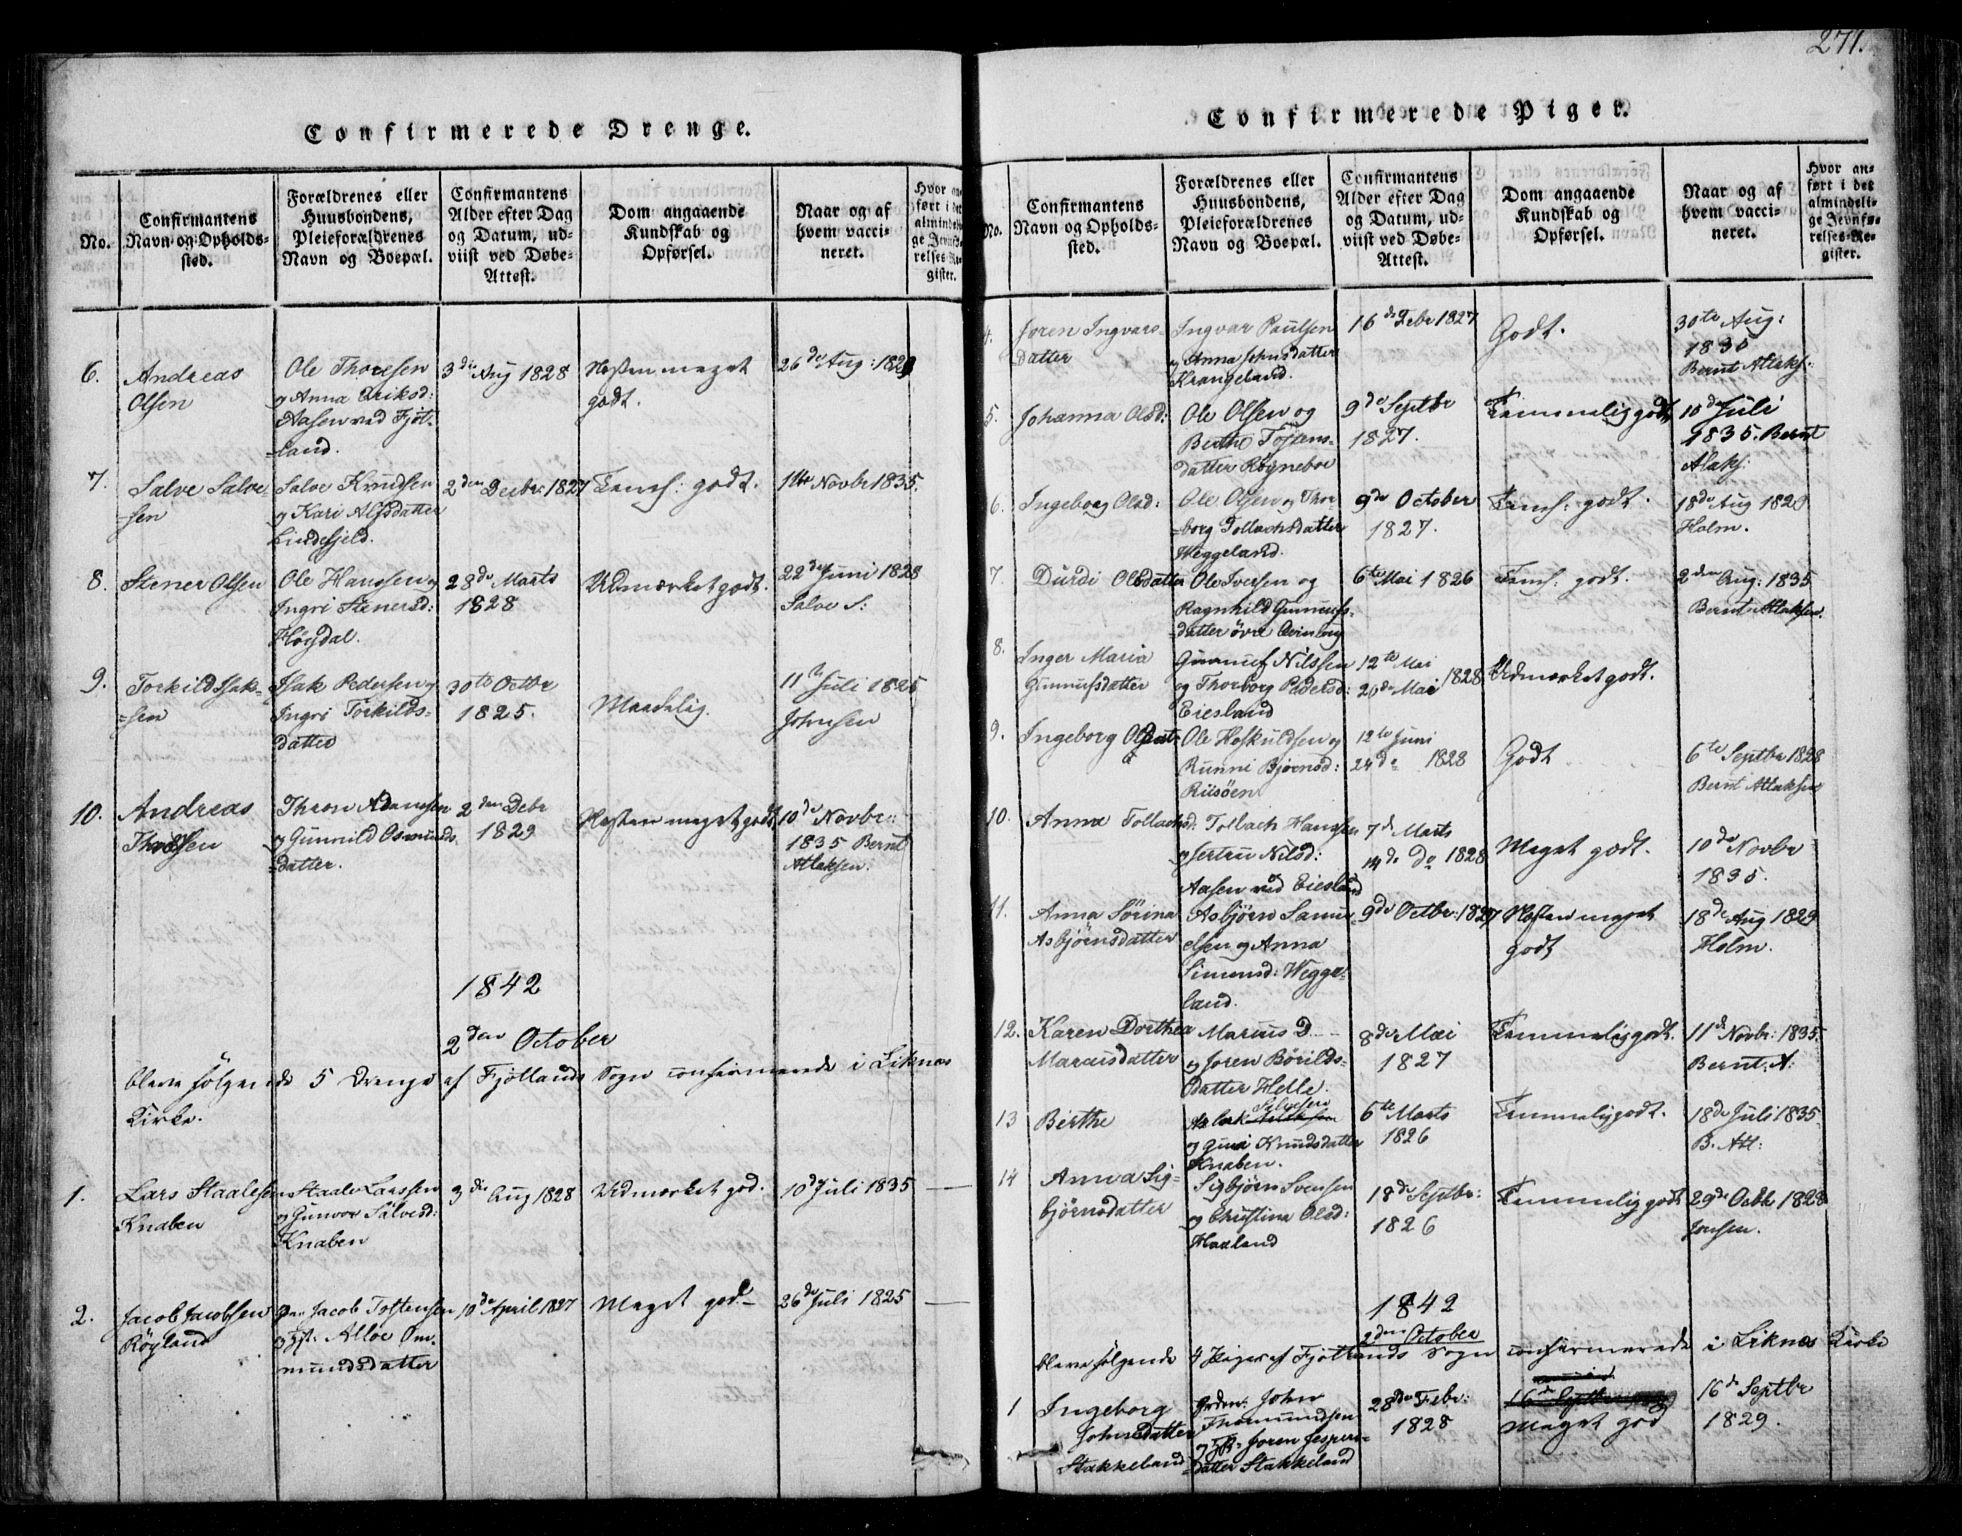 271.
Confirmerede Drenge.
No.
Confirmantens
Navn og Opholds-
sted.
Forældrenes eller
Huusbondens,
Pleieforældrenes
Navn og Boepæl.
Confirmantens
Alder efter Dag
og Datum, ud-
viist ved Døbe-
Attest.
Dom angaaende
Kundskab og
Opførsel.
Naar og af
hvem vacci-
neret.
Hvor an-
ført i det
almindeli-
ge Jevnfø-
relses-Re-
gister.
6.
Andreas
Olsen
Ole Thoresen
og Anna Eriksd:
Aasen ved Fjot-
land.
3die Aug 1828
Næsten meget
godt.
26de Aug: 1829
7.
Salve Salve-
sen
Salve Knudsen
og Kari Alfsdatter
Lindefjeld.
2den Decbr: 1827
Teml: godt.
11te Novbr 1835.
8.
Stener Olsen
Ole Hanssen og
Ingri Stenersd:
Høisdal.
28de Marts
1828
Udmærket godt.
22de Juni 1828
Salve S:
9.
Torkild Isak-
sen
Isak Pedersen og
Ingri Torkilds-
datter
30te Octbr
1825.
Maadelig.
11te Juli 1825
Johnsen
10.
Andreas
Thronsen
Thron Adamsen
og Gunnild Osmunds-
datter.
2den Debr
1829
Næsten meget godt
10de Novbr:
1835 Bernt
Atlaksen.
1842
2den October
bleve følgende 5 Drenge af Fjotlands Sogn confirmerede i Liknes
Kirke.
1.
Lars Staalesen
Knaben
Staale Larssen
og Gunvor Salvesd:
Knaben
3die Aug 1828
Udmærket god.
10de Juli 1835
2.
Jacob Jacobsen
Røyland
Jacob Tostensen
og Alloe Om-
mundsdatter
10de April 1827
Meget god
26de Juli 1825
Confirmerede Piger.
No.
Confirmantens
Navn og Opholds-
sted.
Forældrenes eller
Huusbondens,
Pleieforældrenes
Navn og Boepæl.
Confirmantens
Alder efter Dag
og Datum, ud-
viist ved Døbe-
Attest.
Dom angaaende
Kundskab og
Opførsel.
Naar og af
hvem vacci-
neret.
Hvor an-
ført i det
almindeli-
ge Jevnfø-
relses-Re-
gister.
4.
Joren Ingvars-
datter
Ingvar Paulsen
og Anna Johnsdatter
Krangeland.
16de Febr 1827
Godt.
30te Aug:
1835
Bernt Atlaks:
5.
Johanna Olsd:
Ole Olsen og
Berthe Tostens-
datter Røgneboe
9de Septbr
1827.
Temmelig godt
10de Juli
1835. Bernt
Atlaks:
6.
Ingeborg Olsd:
Ole Olsen og Thor-
borg Tollachsdatter
Weggeland.
9de October
1827.
Teml: godt.
18de Aug 1829
Holm.
7.
Durdi Olsdatter
Ole Iversen og
Ragnhild Gunnufs-
datter øvre Qvinlog
6te Mai 1826
Teml: godt.
2den Aug: 1835
Bernt Atlaksen.
8.
Inger Maria
Gunnufsdatter
Gunnuf Nilssen
og Thorborg Pedersd:
Eiesland
12te Mai
20de Mai 1828
Udmærket godt.
9.
Ingeborg Olsdat
Ole Hoskuldsen og
Runni Bjørnsd:
Riisøen
12te Juni
24de 1828
Godt
6te Septbr 1828
Bernt Atlaksen
10.
Anna Tollachsd.
Tollach Hanssen
og Jertru Nilsd:
Aasen ved Eiesland
7de Marts
14de do 1828
Meget godt.
10de Novbr
1835.
11.
Anna Sørina
Asbjørnsdatter
Asbjørn Samu-
elsen og Anna
Simonsd: Wegge-
land.
9de Octbr: 1827
Næsten meget
godt
18de Aug 1829
Holm.
12.
Karen Dorthea
Marcusdatter
Marcus D
og Joren Børilds-
datter Helle.
8de Mai
1827
Temmelig godt.
11de Novbr: 1835.
Bernt. A:
13
Berthe
Aslak Salvesen
og Guri Knudsdatter
Knaben.
6te Marts
1826
Temmelig godt.
18de Juli 1835
B. Atl:
14
Anna Sig-
bjørnsdatter
Sigbjørn Svensen
og Christina Olsd:
Haaland
18de Septbr:
1826
Temmelig godt
29de Octbr 1828
Jonsen.
1842
2den October
bleve følgende 4 Piger af Fjotlands Sogn confirmerede i Liknes Kirke
1
Ingeborg
Johnsdatter
Stakkeland
John
Thormundsen
og Joren Jespers-
datter Stakkeland
28de Febr:
1828
Meget god
16de Septbr
1829.